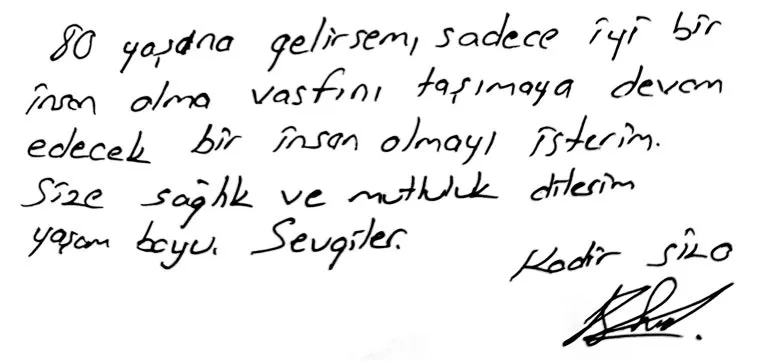 80 yaşına gelirsem, sadece iyi bir
insan olma vasfını taşımaya devam
edecek bir insan olmayı isterim.
Size sağlık ve mutluluk dilerim
yaşam boyu. Sevgiler.
Kadir